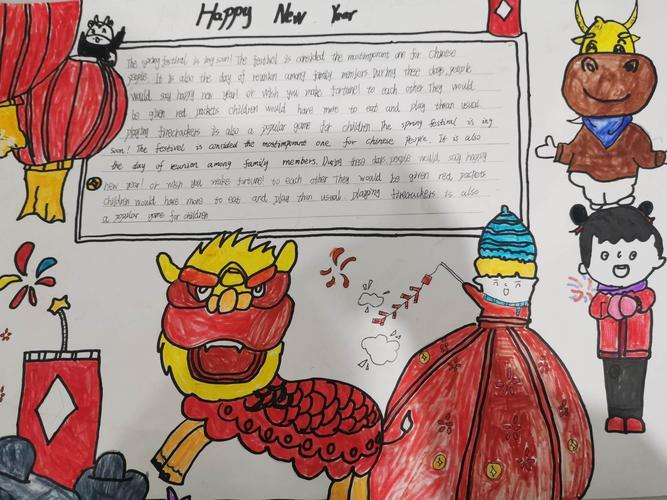 Happy New Year
The spring festival is ing soon! The festival is consided the mostimporant one for Chinese
people. It is also the day of reunion among family members. During these days, people
would say happy new year! or wish you make fortune! to each other. They would
be given red packets. Children would have more to eat and play than usual.
playing firecrackers is also a popular game for children. The spring festival is ing
soon! The festival is consided the mostimporant one for Chinese people. It is also
the day of reunion among family members. During these days, people would say happy
new year! or wish you make fortune! to each other. They would be given red packets
Children would have more to eat and play than usual. playing firecrackers is also
a popular game for children